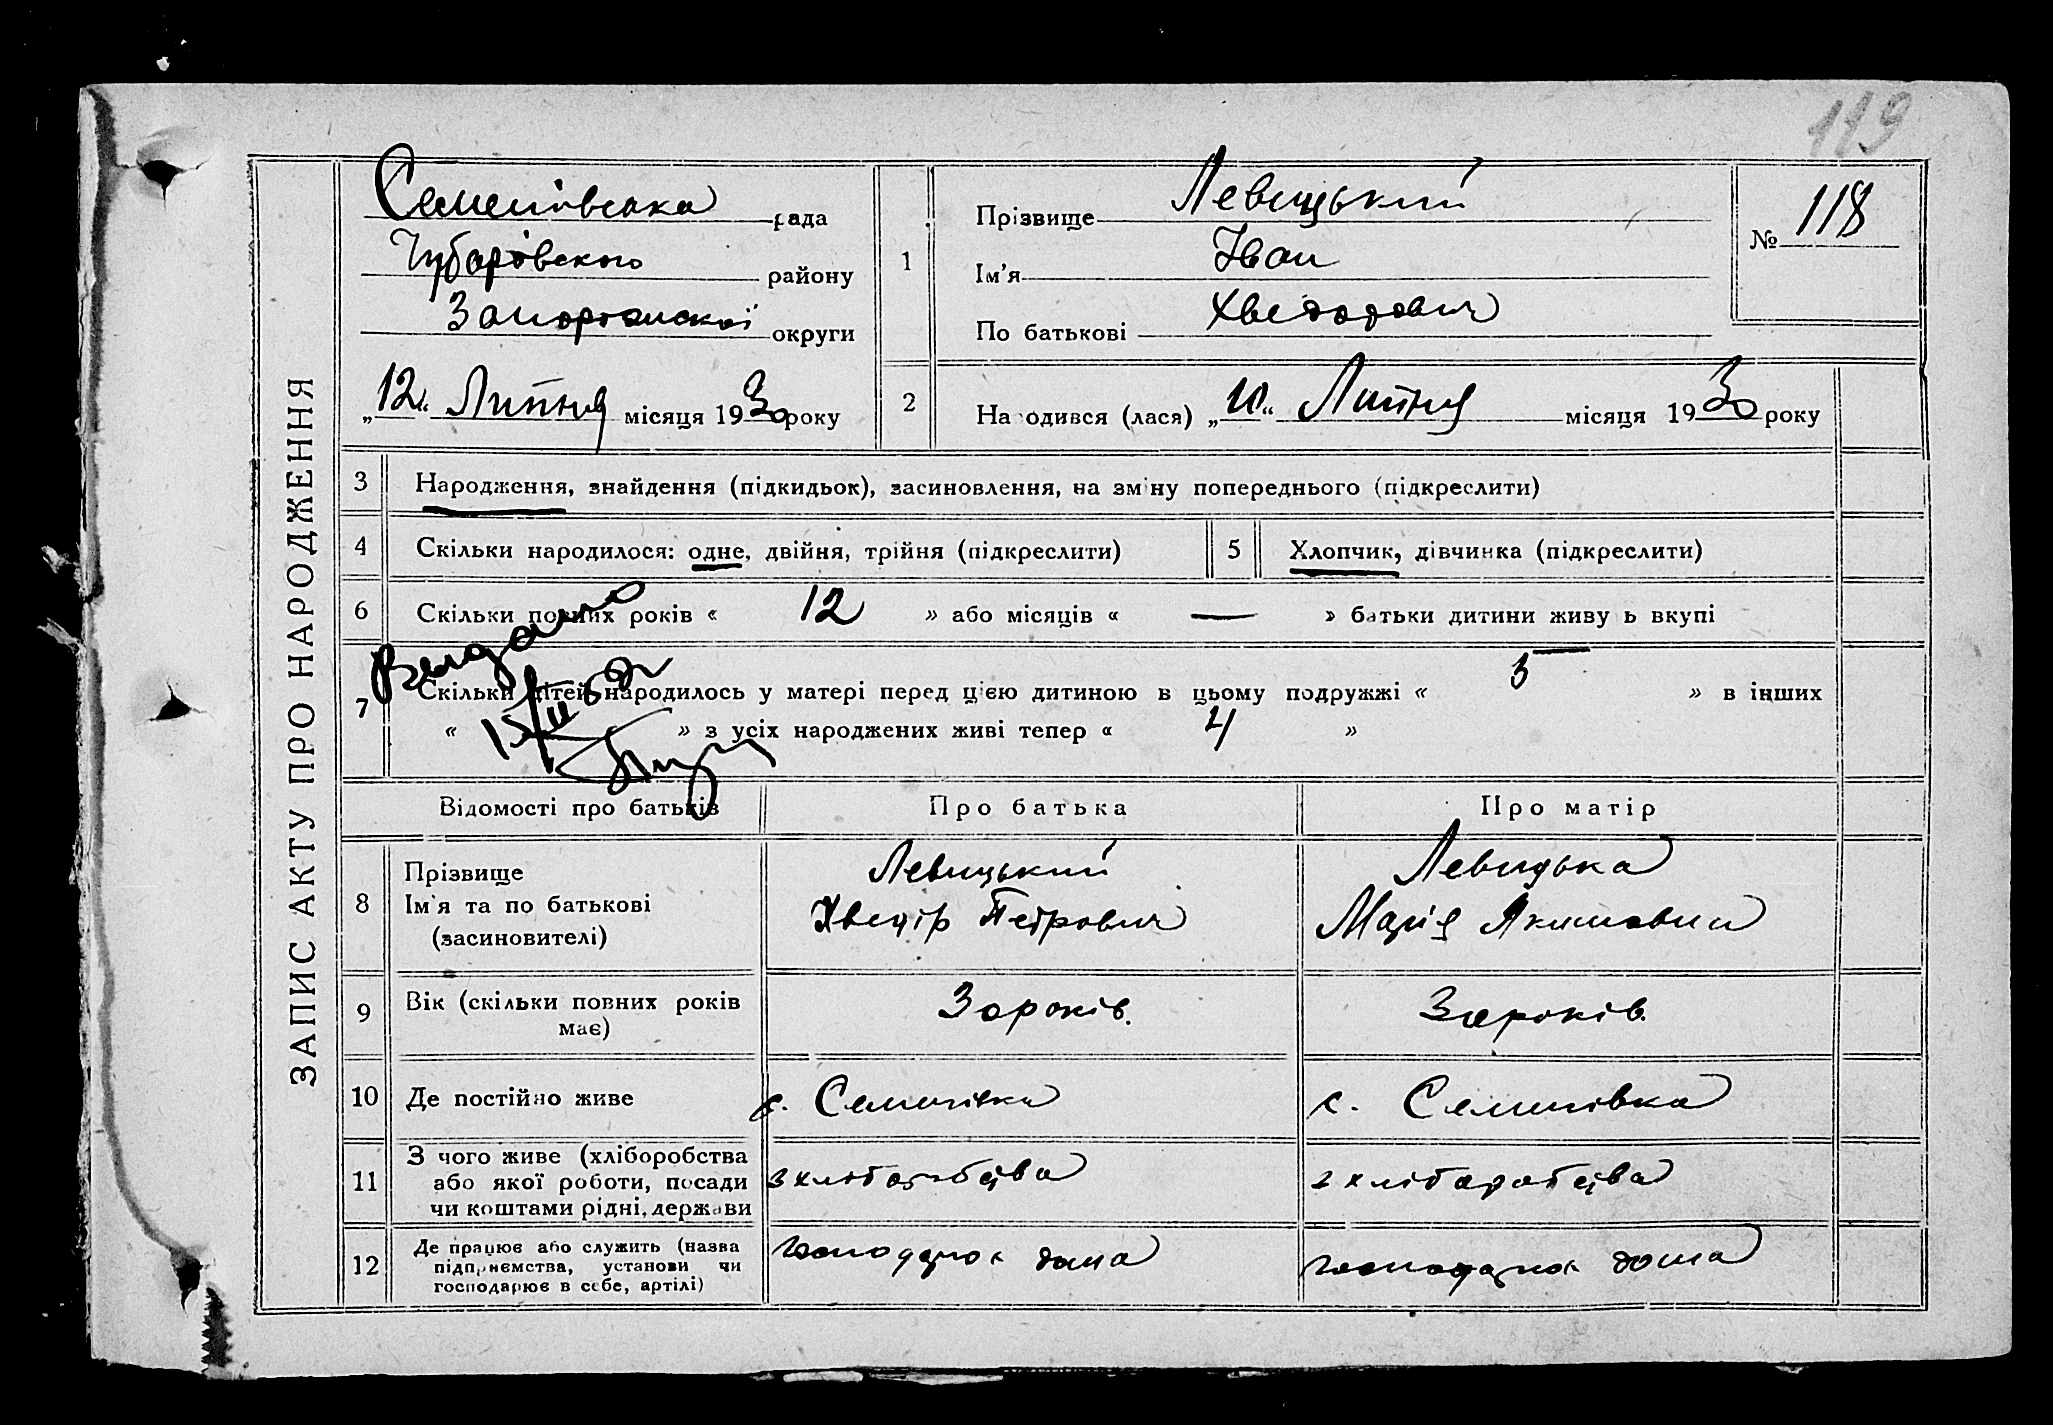 119
ЗАПИС АКТУ ПРО НАРОДЖЕННЯ
Семенівська рада
Чубарівського району
Запорізької округи
„12“ Липня місяця 1930 року
1
Прізвище Левицький
Ім'я Іван
По батькові Хведорович
№ 118
2
Народився (лася) „10“ Липня місяця 1930 року
3 Народження, знайдення (підкидьок), засиновлення, на зміну попереднього (підкреслити)
4 Скільки народилося: одне, двійня, трійня (підкреслити)
5 Хлопчик, дівчинка (підкреслити)
6 Скільки повних років « 12 » або місяців « — » батьки дитини живуть вкупі
7 Скільки дітей народилось у матері перед цією дитиною в цьому подружжі « 3 » в інших
« » з усіх народжених живі тепер « 4 »
Відомості про батьків Про батька Про матір
8 Прізвище
Ім'я та по батькові
(засиновителі)
Левицький
Хведір Петрович
Левицька
Марія Якимовна
9 Вік (скільки повних років
має)
років.
років.
10 Де постійно живе
с. Семенівка
с. Семенівка
11 З чого живе (хліборобства
або якої роботи, посади
чи коштами рідні, держави
з хліборобства
з хліборобства
12 Де працює або служить (назва
підприємства, установи чи
господарює в себе, артілі)
дома
дома